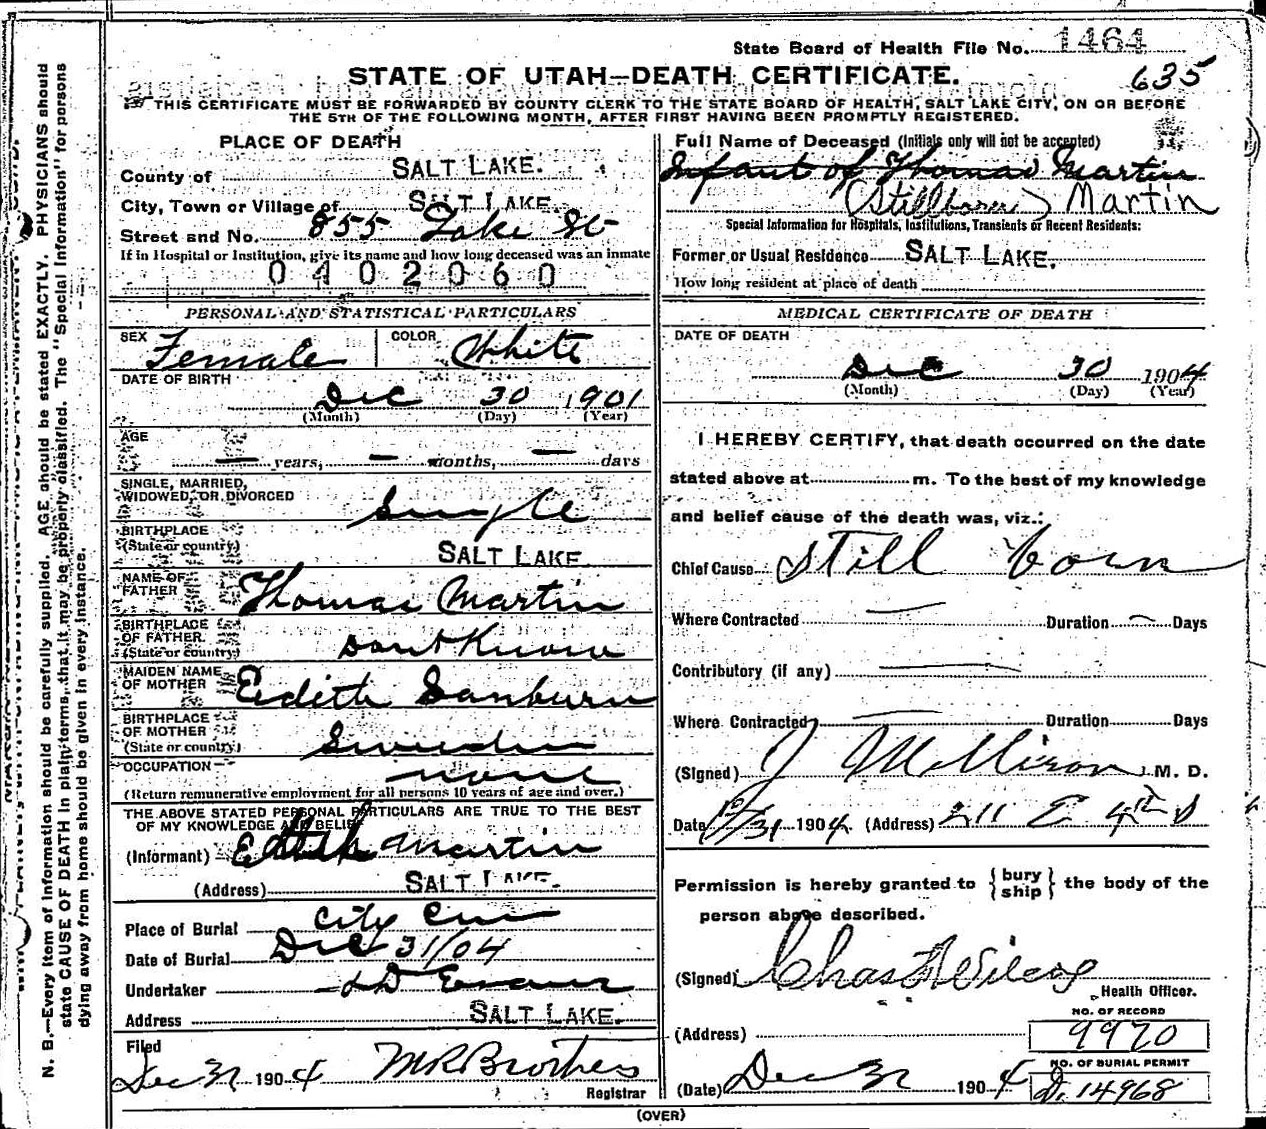 State Board of Health File No. 1464
STATE OF UTAH—DEATH CERTIFICATE.
635
THIS CERTIFICATE MUST BE FORWARDED BY COUNTY CLERK TO THE STATE BOARD OF HEALTH, SALT LAKE CITY, ON OR BEFORE
THE 5TH OF THE FOLLOWING MONTH, AFTER FIRST HAVING BEEN PROMPTLY REGISTERED.
PLACE OF DEATH
County of SALT LAKE.
City, Town or Village of SALT LAKE.
Street and No. 855 Lake St
If in Hospital or Institution, give its name and how long deceased was an inmate
0402060
Full Name of Deceased (Initials only will not be accepted)
Infant of Thomas Martin
(Stillborn) Martin
Special Information for Hospitals, Institutions, Transients or Recent Residents:
Former or Usual Residence SALT LAKE.
How long resident at place of death
PERSONAL AND STATISTICAL PARTICULARS
SEX Female
COLOR White
DATE OF BIRTH
Dec 30 1901
(Month) (Day) (Year)
AGE
— years, — months, — days
SINGLE, MARRIED,
WIDOWED, OR DIVORCED Single
BIRTHPLACE
(State or country) SALT LAKE
NAME OF
FATHER Thomas Martin
BIRTHPLACE
OF FATHER
(State or country) Dont Know
MAIDEN NAME
OF MOTHER Edith Sanburn
BIRTHPLACE
OF MOTHER
(State or country) Sweden
OCCUPATION none
(Return remunerative employment for all persons 10 years of age and over.)
THE ABOVE STATED PERSONAL PARTICULARS ARE TRUE TO THE BEST
OF MY KNOWLEDGE AND BELIEF
(Informant) Edith Martin
(Address) SALT LAKE.
Place of Burial City Cem
Date of Burial Dec 31/04
Undertaker Evans
Address SALT LAKE.
Filed
Dec 31 1904
Registrar
MEDICAL CERTIFICATE OF DEATH
DATE OF DEATH
Dec 30 1904
(Month) (Day) (Year)
I HEREBY CERTIFY, that death occurred on the date
stated above at m. To the best of my knowledge
and belief cause of the death was, viz.:
Chief Cause Still born
Where Contracted — Duration — Days
Contributory (if any) —
Where Contracted — Duration Days
(Signed) J M. D.
Date 12/31 1904 (Address) 211 E 4th S
Permission is hereby granted to {bury ship} the body of the
person above described.
(Signed) Chas
Health Officer.
(Address)
NO. OF RECORD
9970
NO. OF BURIAL PERMIT
D. 14968
(Date) Dec 31 1904
(OVER)
N. B.—Every item of information should be carefully supplied. AGE should be stated EXACTLY. PHYSICIANS should
state CAUSE OF DEATH in plain terms, that it may be properly classified. The "Special Information" for persons
dying away from home should be given in every instance.